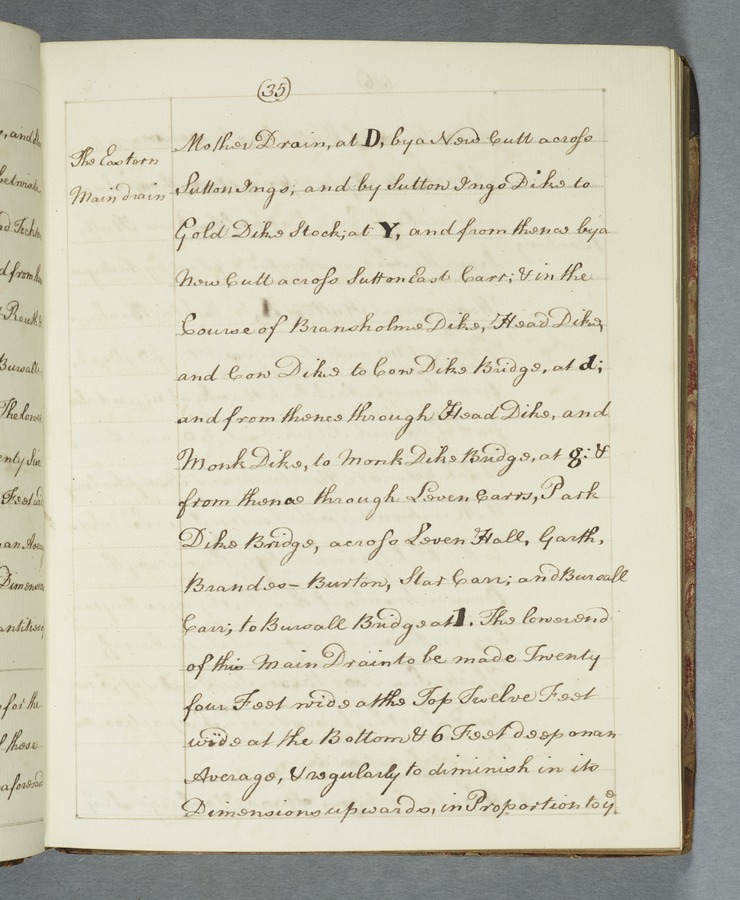 (35)
The Eastern
Main drain
Mother Drain, at D, by a New Cutt across
Sutton Ings; and by Sutton Ings Dike to
Gold Dike Stock; at Y, and from thence by a
New Cutt across Sutton East Carr; & in the
Course of Bransholme Dike, Head Dike,
and Cow Dike to Cow Dike Bridge, at d;
and from thence through Head Dike, and
Monk Dike, to Monk Dike Bridge, at g: &
from thence through Leven Carrs, Park
Dike Bridge, across Leven Hall, Garth,
Brandes-Burton, Star Carr; and Bursall
Carr; to Bursall Bridge at l. The lower end
of this Main Drain to be made Twenty
four Feet wide at the Top Twelve Feet
wide at the Bottom & 6 Feet deep on an
Average, & regularly to diminish in its
Dimensions upwards, in Proportion to ye